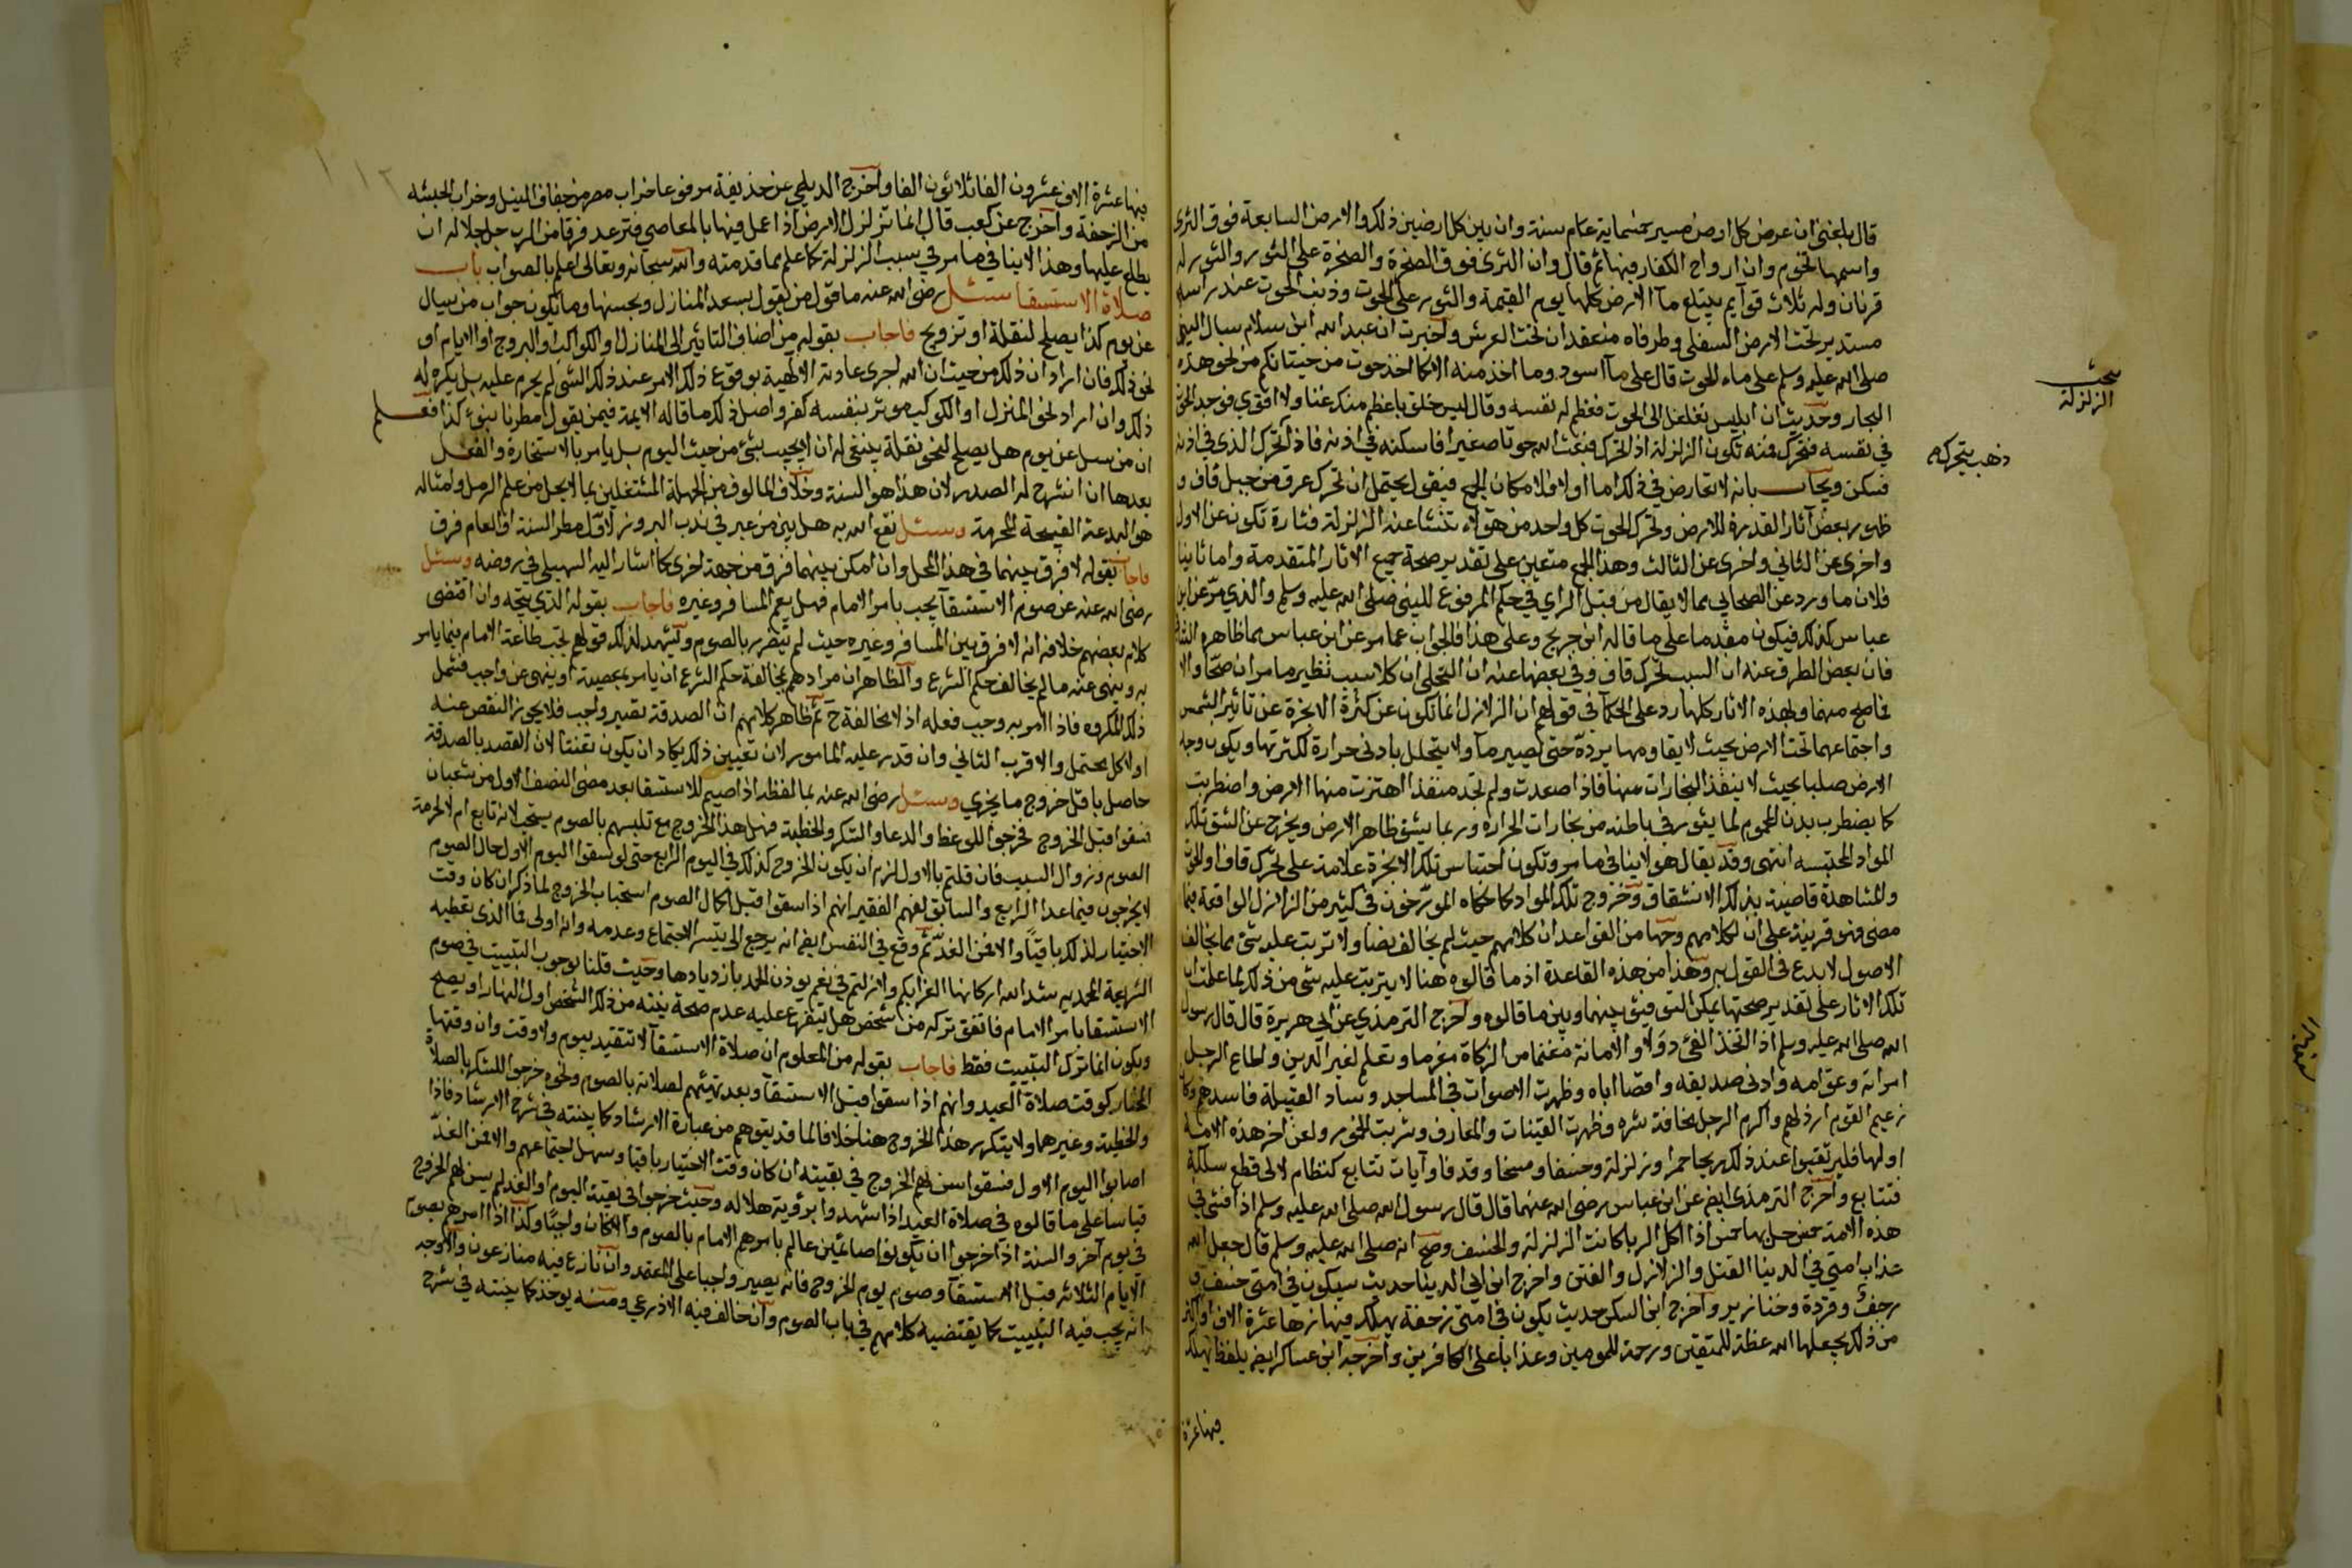 قال بلغني ان عرض كل ارض مسيرة خمسماية عام سنة وان بين كل ارضين ذلك والارض السابعة فوق الثرى
واسمها تخوم وان ارواح الكفار فيها ثم قال وان الثرى فوق الصخرة والصخرة على الثور والثور له
قرنان وله ثلاث قوايم يبتلع مآ الارض كلها يوم القيمة والثور على الحوت وذنب الحوت عند راسه
مستدير تحت الارض السفلى وطرفاه منعقدان تحت العرش واخبرت ان عبد الله ابن سلام سال النبي
صلى الله عليه وسلم على ماء الحوت قال على مآ اسود وما اخذ منه الا كما اخذ حوت من حيتانكم من نحو هذه
البحار وحديث ان ابليس تغلغل الى الحوت فعظم له نفسه وقال ليس خلق باعظم منك غنا ولا اقوى فوجد الحوت
في نفسه فتحرك فمنه تكون الزلزلة اذا تحرك فبعث الله حوتا صغيرا فاسكنه في اذنه فاذا تحرك الذي في اذنه
فسكن ويجاب بانه لا تعارض في ذلك اما اولا فلامكان الجمع فيقول يحتمل ان تحرك عرق من جبل قاف و
ظهور بعض آثار القدرة للارض وتحرك الحوت كل واحد من هؤلاء تنشا عنه الزلزلة فتارة تكون عن الاول
واخرى عن الثاني واخرى عن الثالث وهذا الجمع متعين على تقدير صحة جميع الاثار المتقدمة واما ثانيا
فلان ما ورد عن الصحابي مما لا يقال من قبل الراي في حكم المرفوع للنبي صلى الله عليه وسلم والذي مرّ عن ابن
عباس كذلك فيكون مقدما على ما قاله ابن جريج وعلى هذا فالجواب عما مر عن ابن عباس مما ظاهره
فان بعض الطرق عنه ان السبب تحرك قاف وفي بعضها عنه ان التجلي ان كلا سبب نظير ما مر ان صحّا والا
فما صح منهما وبهذه الاثار كلها رد على الحكآ في قولهم ان الزلازل انما تكون عن كثرة الابخرة عن تاثير الشمس
واجتماعهما تحت الارض بحيث لا يقاومها برده حتى تصير مآ ولا يتحلل بادنى حرارة لكثرتها ويكون وجه
الارض صلبا بحيث لا ينفذ البخارات منها فاذا صعدت ولم تجد منفذا اهتزت منها الارض واضطربت
كما يضطرب بدن المحموم لما يثور في باطنه من بخارات الحرارة وربما يشق ظاهر الارض ويخرج عن الشق تلك
المواد المحتبسه انتهى وقد يقال هو لا ينافي ما مر وتكون احتباس تلك الابخرة علامة على تحرّك قاف او الحوت
والمشاهدة قاضية بذلك الانشقاق وخروج تلك المواد كما حكاه المؤرّخون في كثير من الزلازل الواقعة فيما
مضى فهو قرينة على ان لكلامهم وجها من القواعد ان كلامهم حيث لم يخالف نصا ولا ترتب عليه شئ مما يخالف
الاصول لا بدع في القول به وهذا من هذه القاعدة اذ ما قالوه هنا لا يترتب عليه شئ من ذلك لما علمت ان
تلك الاثار على تقدير صحتها يمكن التوفيق بينها وبين ما قالوه واخرج الترمذي عن ابي هريرة قال قال رسول
الله صلى الله عليه وسلم اذا اتخذ الفئ دولا والامانة مغنما والزكاة مغرما وتعلم لغير الدين واطاع الرجل
امراته وعق امه وادنى صديقه واقصا اباه وظهرت الاصوات في المساجد وساد القبيلة فاسدهم وكان
زعيم القوم ارذلهم واكرم الرجل مخافة شره وظهرت القينات والمعازف وشربت الخمور ولعن اخر هذه الامة
اولها فليرتقبوا عند ذلك ريحا حمرا وزلزلة وخسفا ومسخا وقدفا وآيات تتابع كنظام لالى قطع سلكه
فتتابع واخرج الترمذى ايض عن ابن عباس رضى الله عنهما قال قال رسول الله صلى الله عليه وسلم اذا فشى في
هذه الامة خمس حل بها خمس اذا اكل الربا كانت الزلزلة والخسف وصح انه صلى الله عليه وسلم قال جعل الله
عذاب امتي في الدنيا القتل والزلازل والفتن واخرج ابن ابي الدنيا حديث سيكون في امتي خسف و
رجف وقردة وخنازير واخرج ابن السكن حديث يكون في امتي رجفة يهلك فيها عشرة الاف
من ذلك يجعلها الله عظة للمتقين ورحمة للمومنين وعذابا على الكافرين واخرجه ابن عساكر ايض بلفظ يهلك
فيها عشرة
مبحث
الزلزلة
ذهب يتحرك
فيها عشرة الاف عشرون الفا ثلاثون الفا واخرج الديلمي عن حذيفة مرفوعا خراب مصر من جفاف النيل وخراب الحبشه
من الرجفة واخرج عن كعب قال انما تزلزل الارض اذا عمل فيها بالمعاصي فترعد فرقا من الرب جل جلاله ان
يطلع عليها وهذا لا ينافي ما مر في سبب الزلزلة كما علم مما قدمته والله سبحانه وتعالى اعلم بالصواب باب
صلاة الاستسقا سئل رضى الله عنه ما قول من يقول بسعد المنازل ونحسها وما يكون جواب من يسال
عن يوم كذا يصلح لنقلة او تزويج فاجاب بقوله من اضاف التاثير الى المنازل او الكواكب او البروج او الايام او
نحو ذلك فان اراد ان ذلك من حيث ان الله اجرى عادته الالهية بوقوع ذلك الامر عند ذلك الشى لم يحرم عليه بل يكره له
ذلك وان اراد نحو المنزل او الكوكب موثر بنفسه كفر واصل ذلك ما قاله الايمة فيمن يقول مطرنا بنوء كذا فعلم
ان من سىل عن يوم هل يصلح لنحو نقلة ينبغي له ان لا يجيب بشئ من حيث اليوم بل يامر بالاستخارة والفعل
بعدها ان انشرح له الصدر لان هذا هو السنة وخلاف المالوف من الجهلة المشتغلين بما لا يحل من علم الرمل وامثاله
هو البدعة القبيحة المحرمة وسئل نفع الله به هل بين من عبر في ندب البروز لاوّل مطر السنة او العام فرق
فاجاب بقوله لا فرق بينهما في هذا المحل وان امكن بينهما فرق من جهة اخرى كما اشار اليه السهيلي في روضه وسئل
رضى الله عنه عن صوم الاستسقآ يجب بامر الامام فهل يعم المسافر وغيره فاجاب بقوله الذي يتجه وان اقتضى
كلام بعضهم خلافه انه لا فرق بين المسافر وغيره حيث لم يتضرر بالصوم ويشهد لذلك قولهم تجب طاعة الامام فيما يامر
به وينهى عنه ما لم يخالف حكم الشرع والظاهر ان مرادهم بمخالفة حكم الشرع ان يامر بمعصية او ينهى عن واجب فشمل
ذلك المكروه فاذا امر به وجب فعله اذ لا مخالفة ح ثم ظاهر كلامهم ان الصدقة تصير واجب فلا يجوز النقص عنه
اولا كل محتمل والاقرب الثاني وان قدر عليه المامور لان تعيين ذلك يكاد ان يكون تعنتا لان القصد بالصدقة
حاصل باقل خروج ما يجزي وسئل رضى الله عنه بما لفظه اذا صيم للاستسقا بعد مضى النصف الاول من شعبان
فسقوا قبل الخروج فخرجوا للوعظ والدعا والشكر والخطبة فهل هذا الخروج مع تلبسهم بالصوم يستحب لانه تابع ام لا لحرمة
الصوم وزوال السبب فان قلتم بالاول لزم ان يكون الخروج كذلك في اليوم الرابع حتى لو سقوا اليوم الاول حال الصوم
لا يخرجون فيما عدا الرابع والسابق لفهم الفقير انهم اذا سقوا قبل اكمال الصوم استحباب الخروج لما ذكر ان كان وقت
الاختيار لذلك باقيًا والا فمن الغد ثم وقع في النفس ايض انه يرجع الى تيسر الاجتماع وعدمه وانه اولى فما الذى تعطيه
الشريعة المحمدية شد الله اركانها الغرا بكم ولا زلتم في نعم يوذن الحمد بازديادها وحيث قلنا بوجوب التبييت في صوم
الاستسقا بامر الامام فاتفق تركه من شخص هل يتفرع عليه عدم صحة نيته من ذلك الشخص اول النهار او يصح
ويكون انما ترك التبييت فقط فاجاب بقوله من المعلوم ان صلاة الاستسقآ لا تتقيد بيوم ولا وقت وان وقتها
المختار كوقت صلاة العيد وانهم اذا سقوا قبل الاستسقآ وبعد تهيئهم لصلاته بالصوم ونحوه خرجوا للشكر بالصلاة
والخطبة وغيرهما ولا يتكرر هذا الخروج هنا خلافا لما قد يتوهم من عبارة الارشاد كما بينته في شرح الارشاد فاذا
اصابوا اليوم الاول فسقوا سن لهم الخروج في بقيته ان كان وقت الاختيار باقيا وسهل اجتماعهم والا فمن الغدّ
قياسا على ما قالوه في صلاة العيد اذا شهدوا برؤية هلاله وحيث خرجوا في بقية اليوم او الغد لم يسن لهم الخروج
في يوم آخر والسنة اذا خرجوا ان يكونوا صائمين عالم بامرهم الامام بالصوم والا كان واجبًا وكذا اذا امرهم بصوم
الايام الثلاثة قبل الاستسقآ وصوم يوم الخروج فانه يصير واجبا على المعتمد وان نازع فيه منازعون والاوجه
انه يجب فيه التبييت كما يقتضيه كلامهم في باب الصوم وان خالف فيه الاذرعي ومنه يوخذ كما بينته في شرح